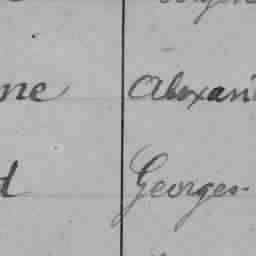 ne Alexan
d Georges